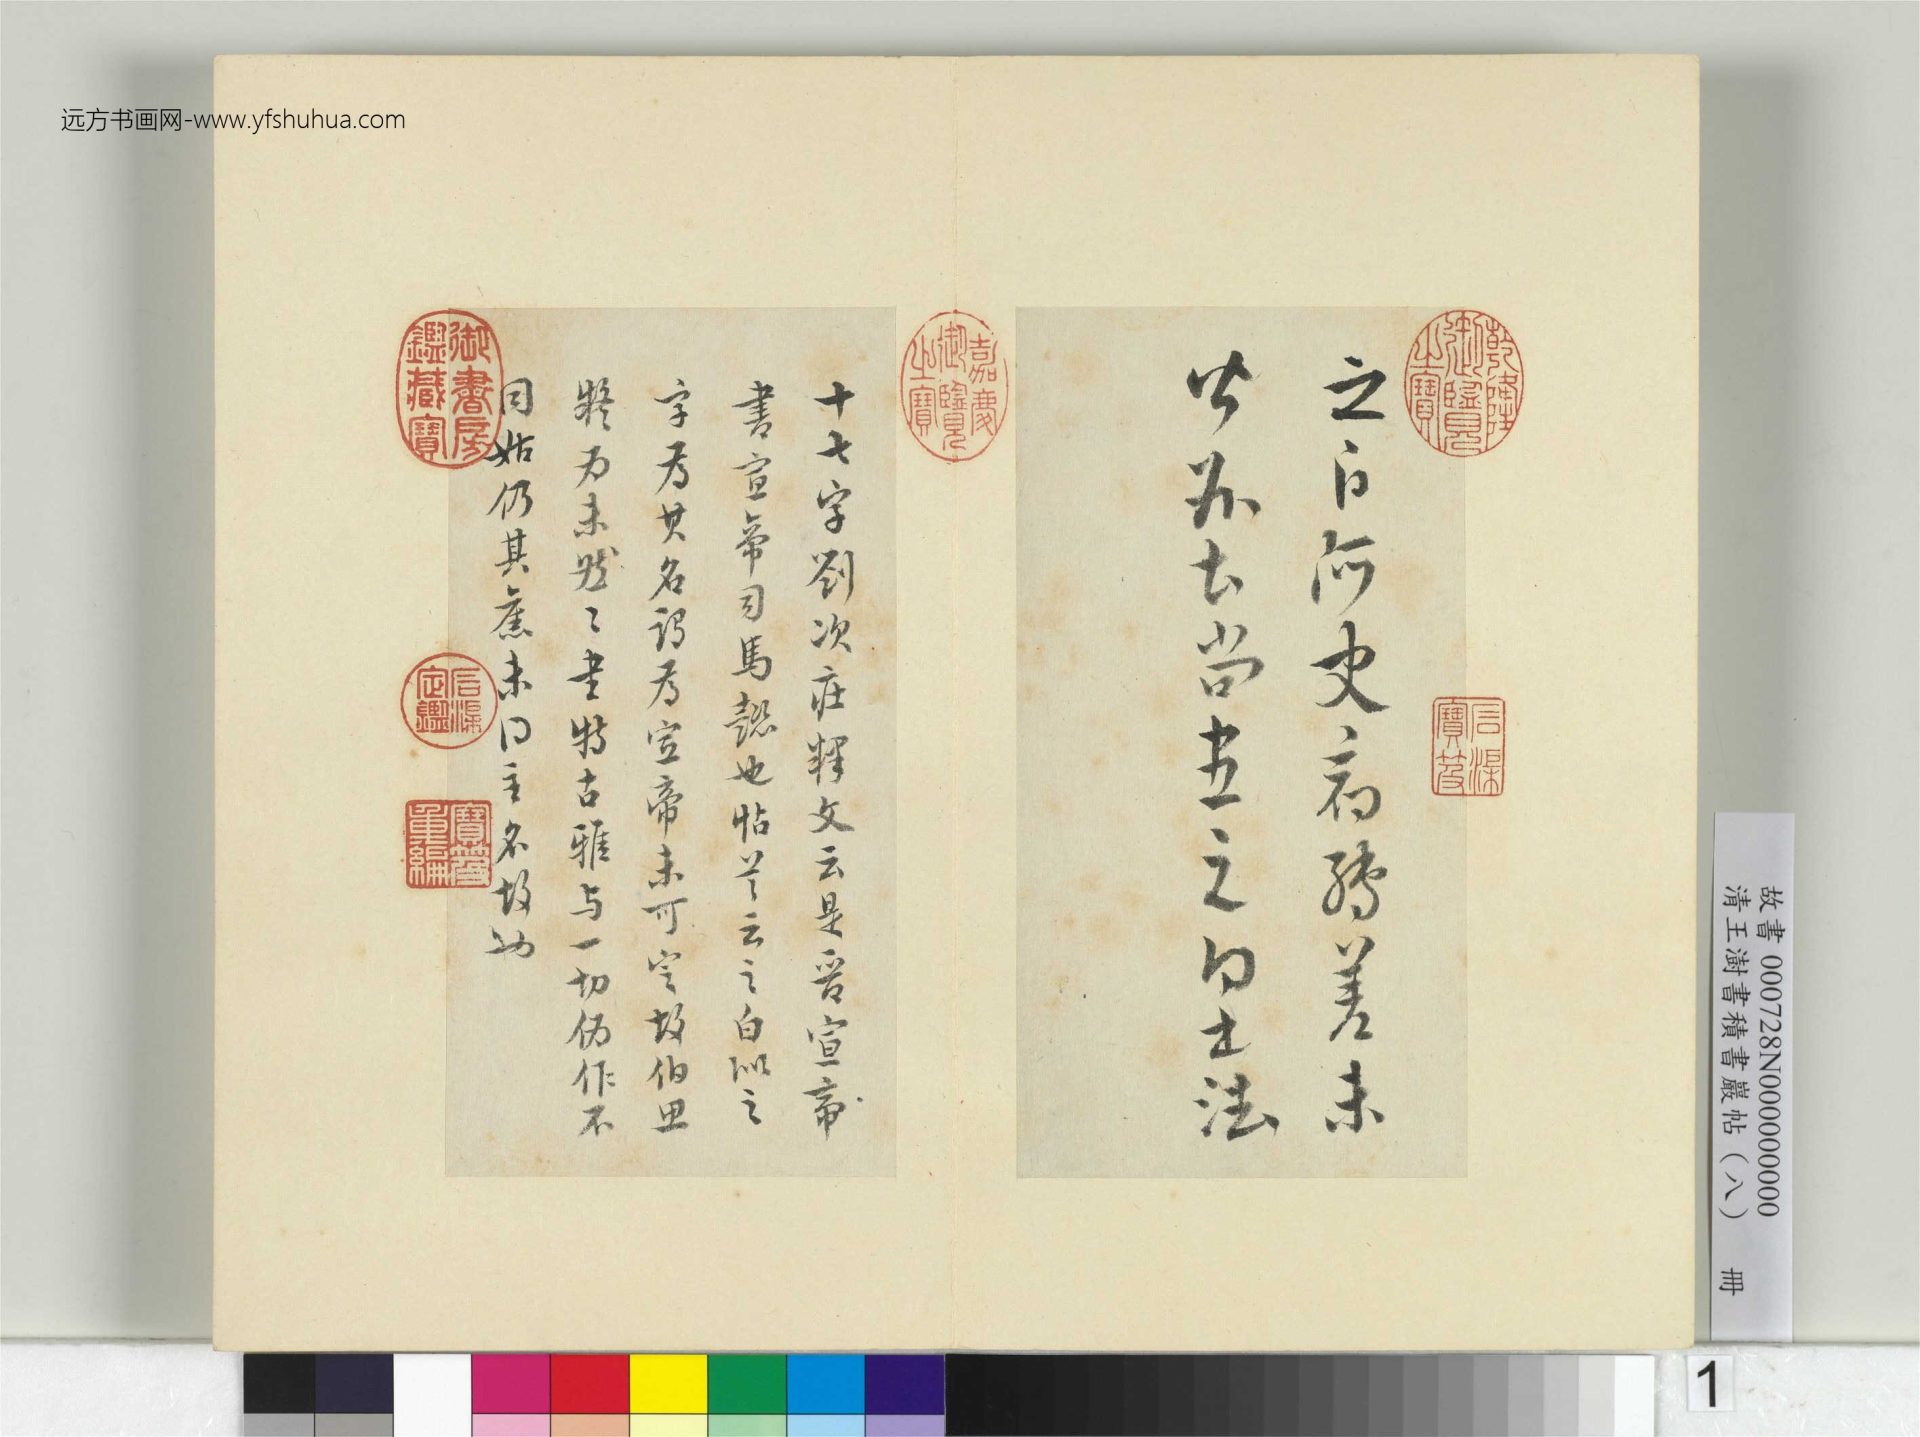 远方书画网-www.yfshuhua.com
乾隆御覽之寶
石渠寶笈
之白阿史病轉差未
爾去尚書之白
嘉慶御覽之寶
十七字劉次莊釋文云是晉宣帝
書宣帝司馬懿也帖首云之白以之
字為其名謂為宣帝未可定故伯思
疑為未然〻書特古雅与一切偽作不
同姑仍其舊未得主名故也
御書房鑑藏寶
石渠定鑑
寶笈重編
故書 000728N000000000
清王澍書積書巖帖(八) 冊
1